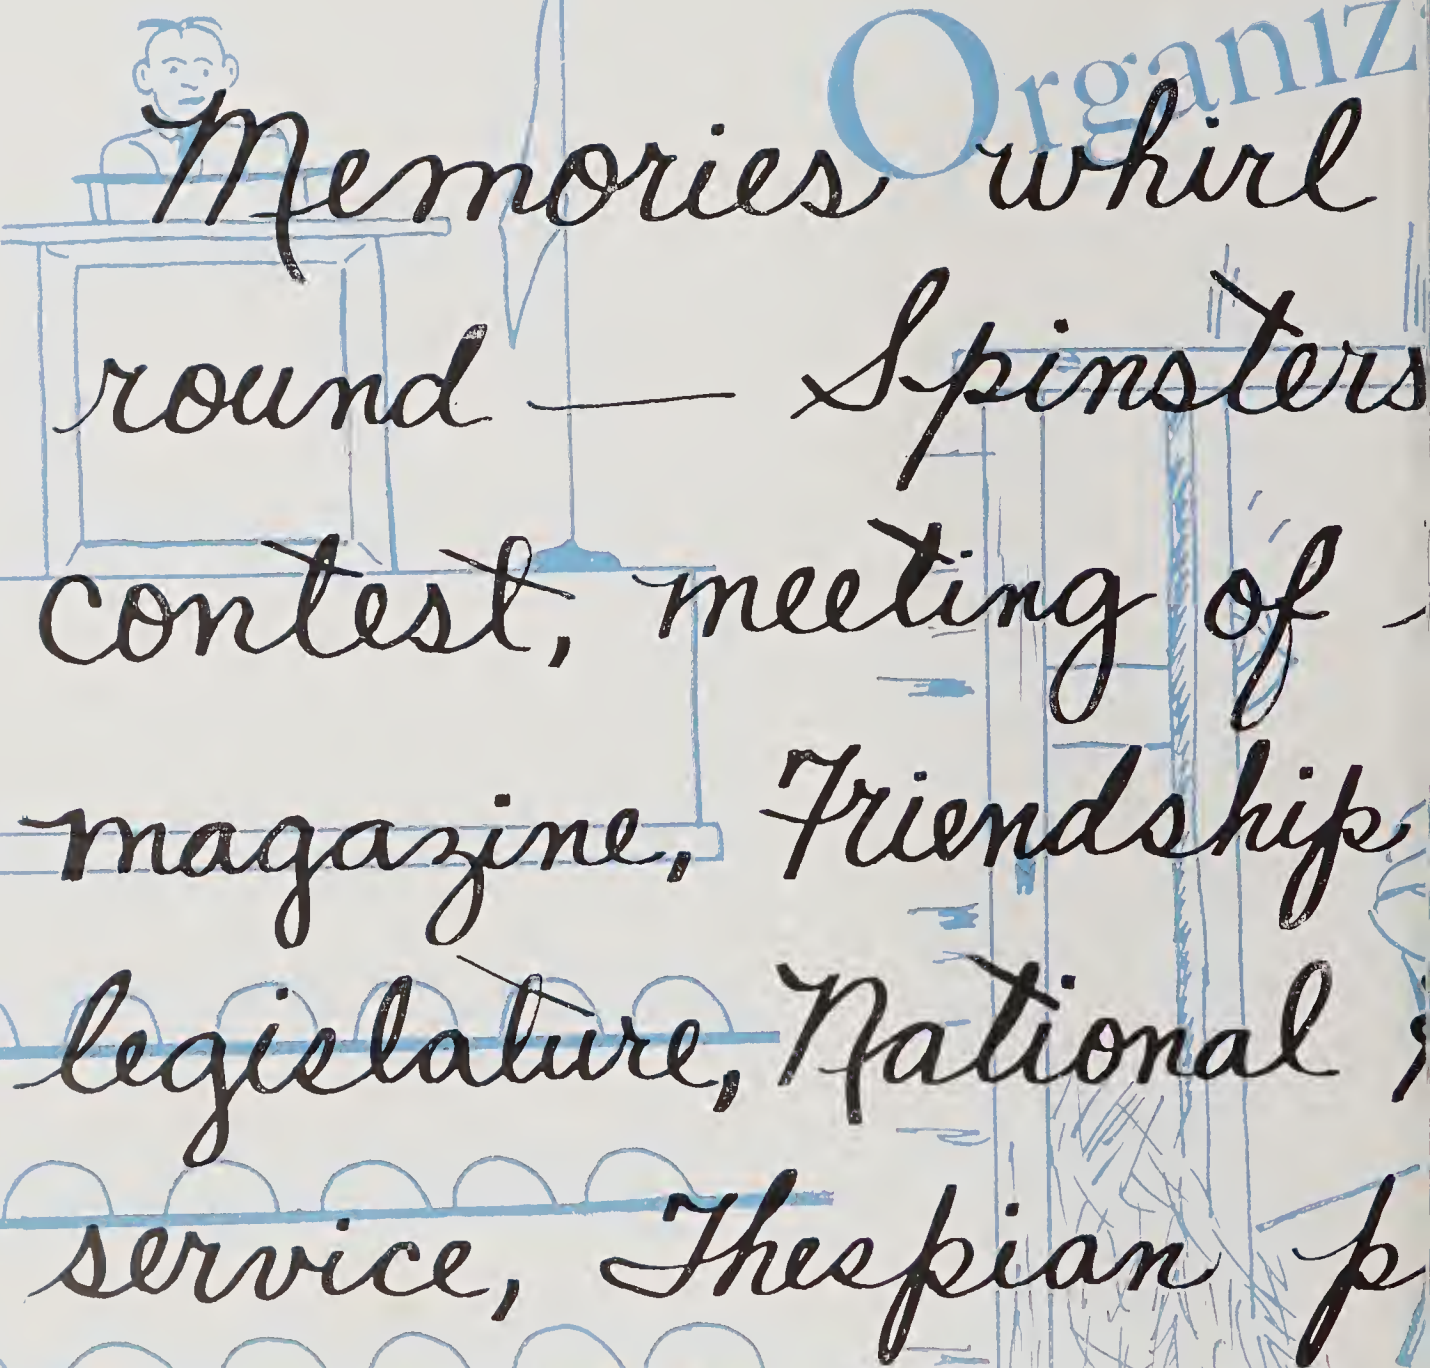 Organiz
Memories whirl
round — Spinsters
contest, meeting of
magazine, Friendship
legislature, National
service, Thespian p